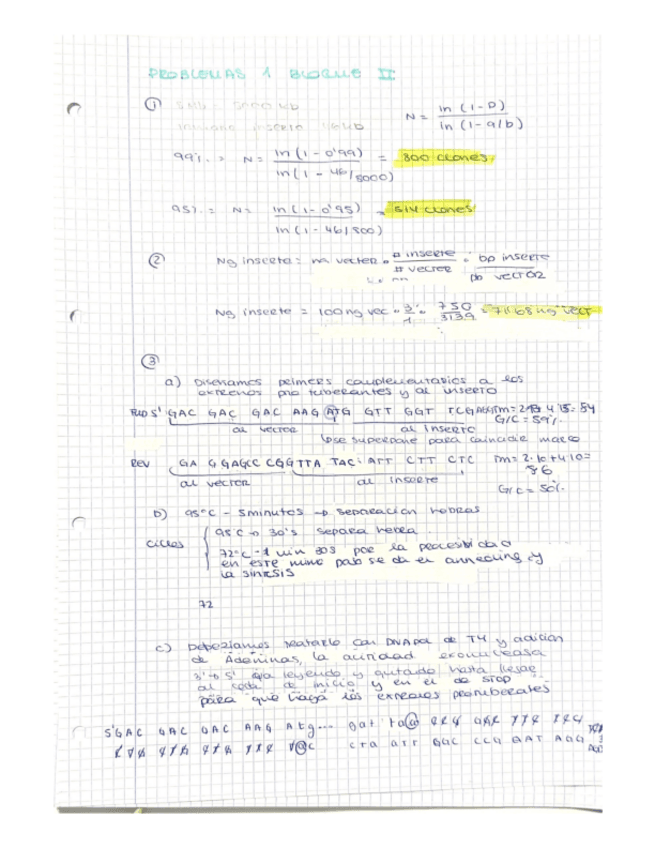 PROBLEMAS 1 BLOQUE II
① 5Mb 5000 kb
inserto 46kb
N = ln (1-P) / ln (1-a/b)
99%. = N = ln (1-0'99) / ln (1 - 46/5000) = 800 clones
95%. = N = ln (1-0'95) / ln (1-46/500) = 514 clones
② Ng inserto = ng vector · # inserto / # vector · bp inserto / pb vector
Ng inserto = 100ng vec · 3 / 1 · 750 / 3139 = 71'68 ng vect
③
a) Diseñamos primers complementarios a los
extremos protuberantes y al inserto
5' GAC GAC GAC AAG ATG GTT GGT
al vector al inserto
se superpone para coincidir marco
Rev GA G GAGCC CGGTTA TAC ATT CTT CTC Tm = 2·10+4·10=
56
al vector al inserto
G/C = 50%.
b) 95°C - 5minutos → Separación hebras
ciclos
95°C → 30's separa hebra
72°C - 1 min 30s por la procesividad
en este mismo paso se da el annealing y
la síntesis
72
c) Deberíamos tratarlo con DNApol de T4 y adición
de Adeninas, la actividad exonucleasa
3'→5' leyendo y quitando hasta llegar
al de inicio y en el de STOP
para que haga los extremos protuberantes
5'GAC GAC GAC AAG Atg... gat taa
cta att GGC CCG GAT AGG